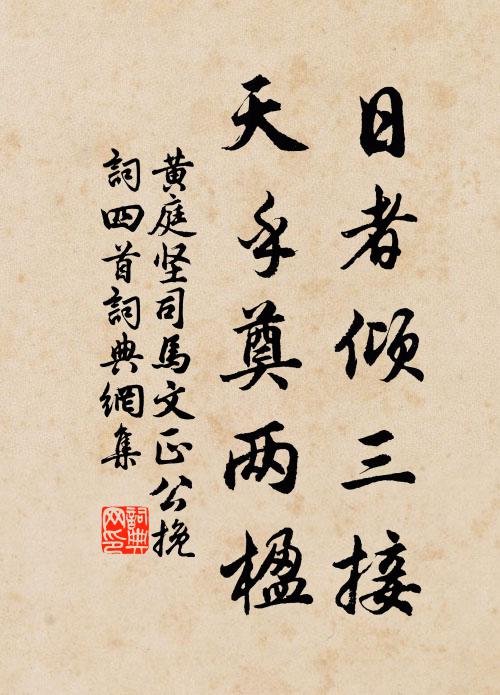 日者倾三接
天乎奠两楹
黄庭坚司馬文正公挽
詞四首詞典網集
詞典
网印